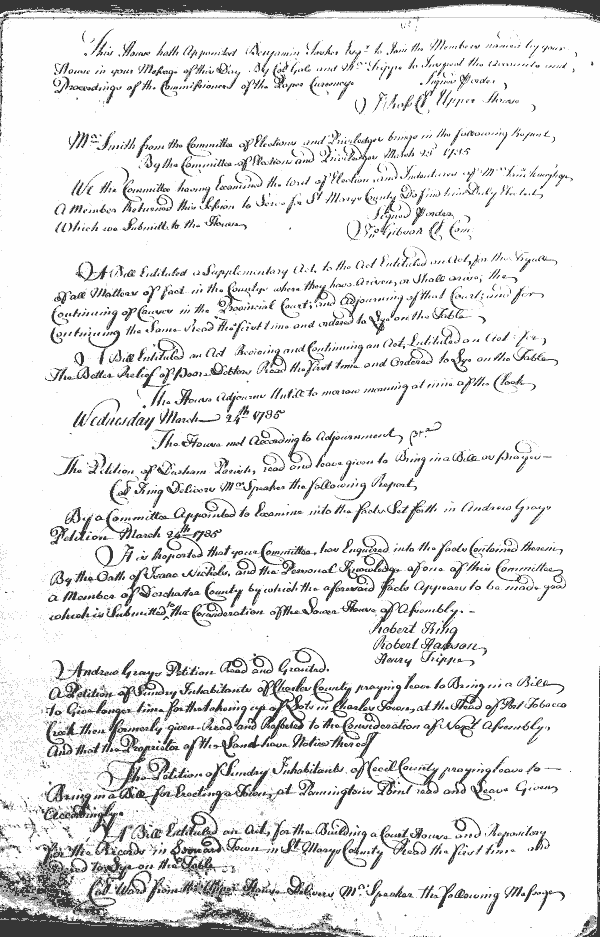 This House hath Appointed Benjamin Tasker Esqr. to Join the Members named by your
House in your Message of this Day By Col Gale and Mr. Trippe to Inspect the Accounts and
Proceedings of the Commissioners of the Paper Currency
Signed Order
Cl. Upper House
Mr. Smith from the Committee of Elections and Priviledges brings in the following Report,
By the Committee of Elections and Priviledges March 23d 1735
We the Committee having Examined the Writ of Election and Indentures of Mr.
A Member Returned this Session to Serve for St Marys County Do find him Duly Elected
Which we Submitt to the House
Signed Order
Gibson Cl. Com
A Bill Entituled a Supplementary Act, to the Act Entituled an Act, for the Tryall
of all Matters of fact in the County's where they have Arisen, or Shall arise; the
Continuing of Causes in the Provincial Court; and Adjourning of that Court; and for
Continuing the Same Read the first time and ordered to Lye on the Table
A Bill Entituled an Act Reviving and Continuing an Act, Entituled an Act for
The Better Relief of Poor Debtors Read the first time and Ordered to Lye on the Table
The House Adjourns Untill to morrow morning at nine of the Clock,
Wednesday March 24th 1735
The House met According to Adjournment, &ca
The Petition of Durham Parish, read and leave given to Bring in a Bill as prayed—
Col King Delivers Mr. Speaker the following Report,
By a Committee Appointed to Examine into the facts Set forth in Andrew Grays
Petition March 24th 1735
It is Reported that your Committee, has Enquired into the facts Contained therein
By the Oath of Isaac Nichols, and the Personal Knowledge of one of this Committee
a Member of Dorchester County by which the aforesaid facts Appears to be made good
which is Submitted to the Consideration of the Lower House of Assembly.
Robert King
Robert Harrison
Henry Trippe
Andrew Grays Petition Read and Granted.
A Petition of Sundry Inhabitants of Charles County praying leave to Bring in a Bill
to Give longer time for the taking up of Lots in Charles Town, at the Head of Port Tobacco
Creek then formerly given Read and Reffered to the Consideration of Next Assembly,
And that the Proprietor of the Land have Notice thereof
The Petition of Sundry Inhabitants of Cecil County praying leave to—
Bring in a Bill for Erecting a Town, at Penningtons Point read and Leave Given
Accordingly
A Bill Entituled an Act, for the Building a Court House and Repository
for the Records in Leonard Town in St Marys County Read the first time and
ordered to Lye on the Table
Col Ward from the Upper House Delivers Mr. Speaker the following Message